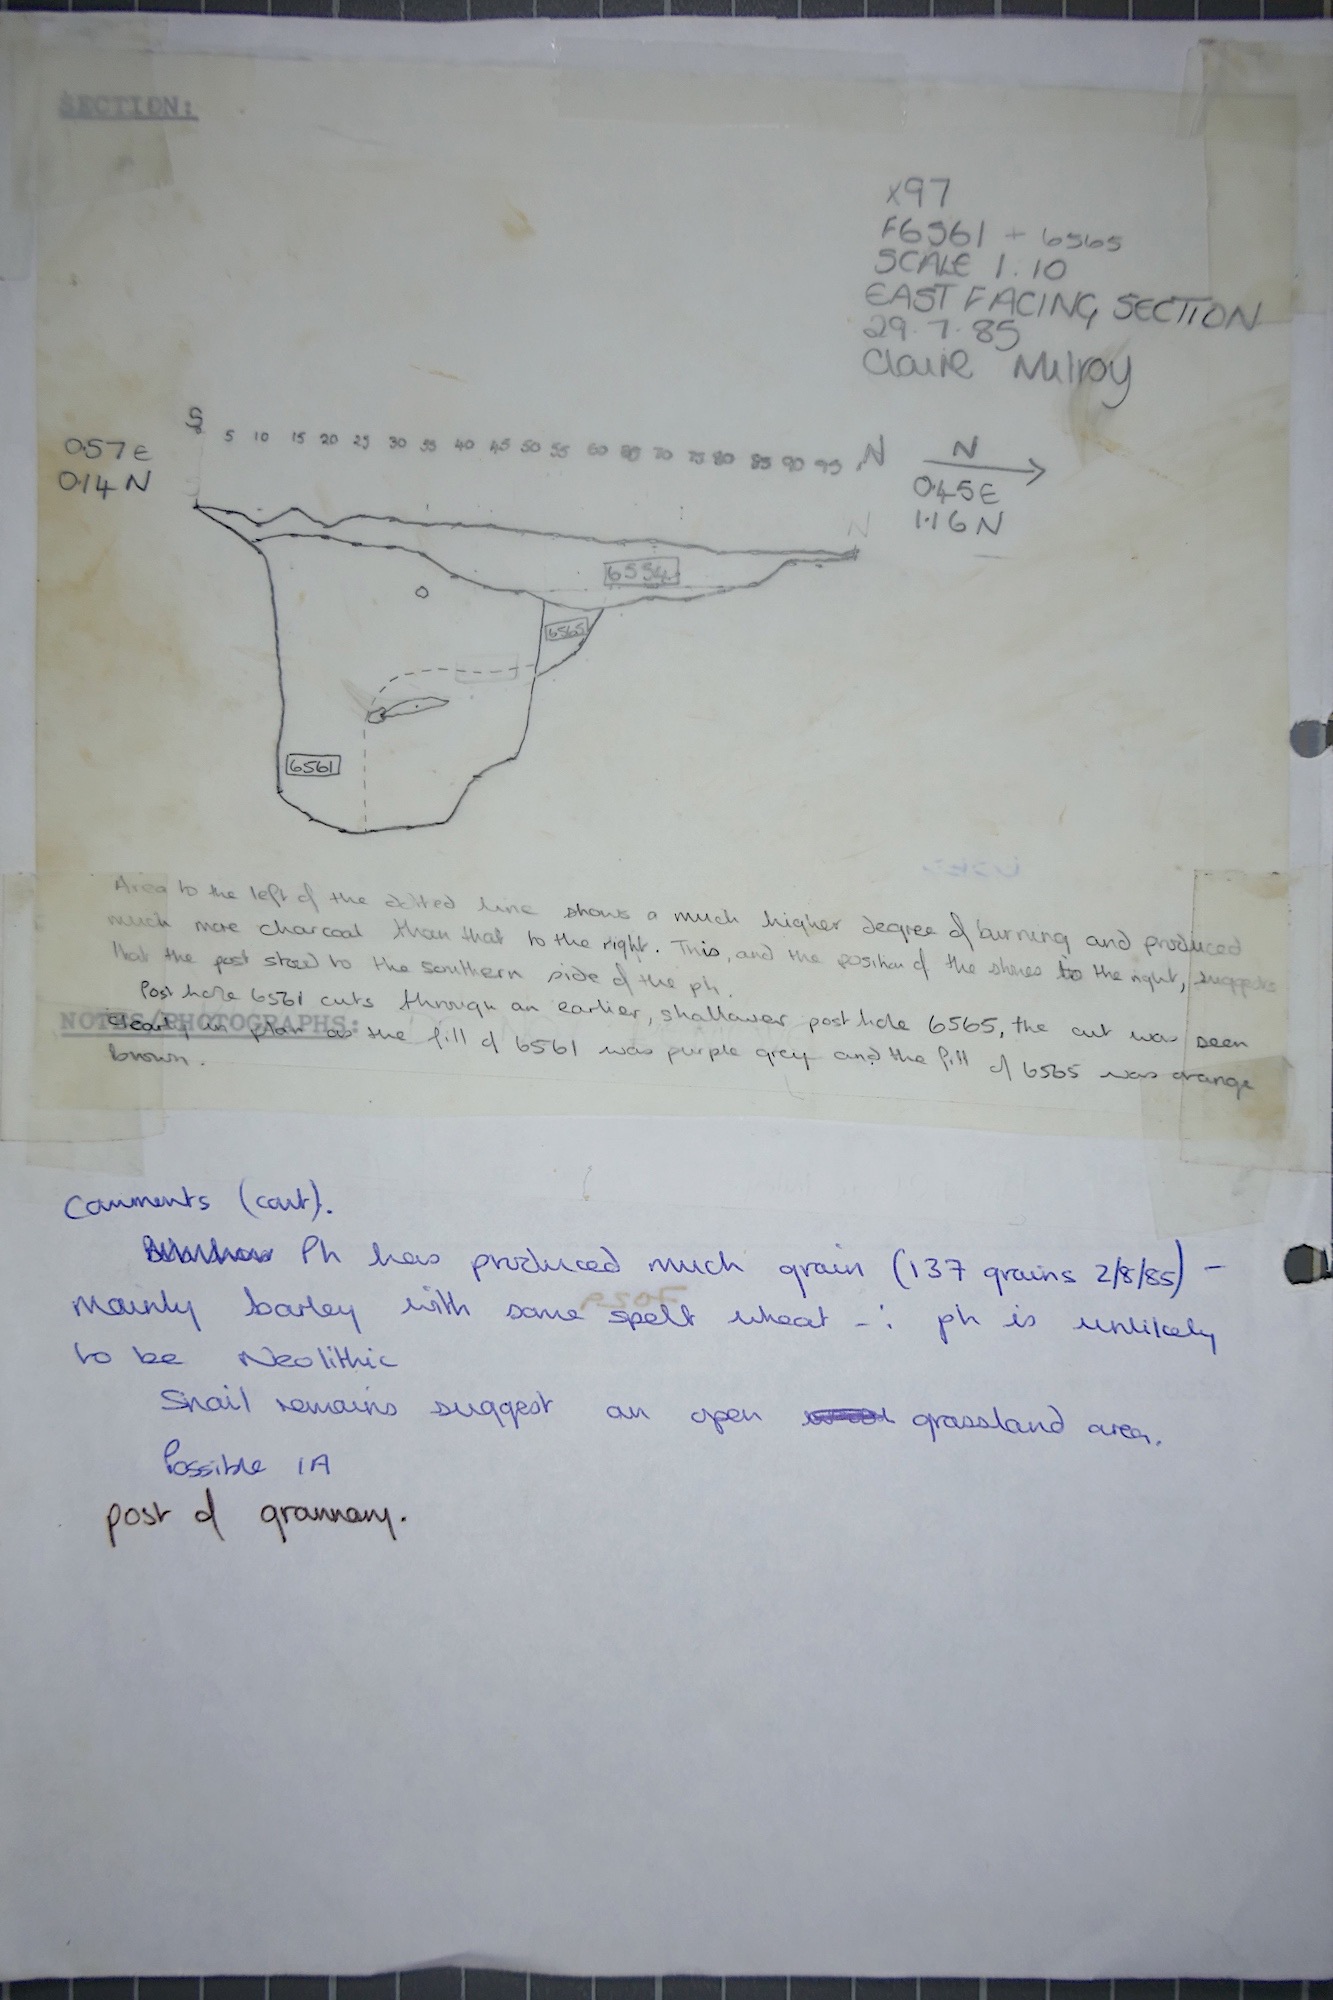 SECTION:
x97
F6561 + 6565
SCALE 1.10
EAST FACING SECTION
29.7.85
Claire Milroy
0.57E
0.14N
S 5 10 15 20 25 30 35 40 45 50 55 60 70 75 80 85 90 95 N
N
0.45E
1.16N
S
N
6554
6565
6561
Area to the left of the dotted line shows a much higher degree of burning and produced
much more charcoal than that to the right. This, and the position of the stones to the right, suggests
that the post stood to the southern side of the ph.
Post hole 6561 cuts through an earlier, shallower post hole 6565, the cut was seen
NOTES/PHOTOGRAPHS:
clearly in plan as the fill of 6561 was purple grey and the fill of 6565 was orange
brown.
Comments (cont).
Ph has produced much grain (137 grains 2/8/85) -
mainly barley with some spelt wheat - ∴ ph is unlikely
to be Neolithic
Snail remains suggest an open grassland area.
Possible IA
post of grannary.